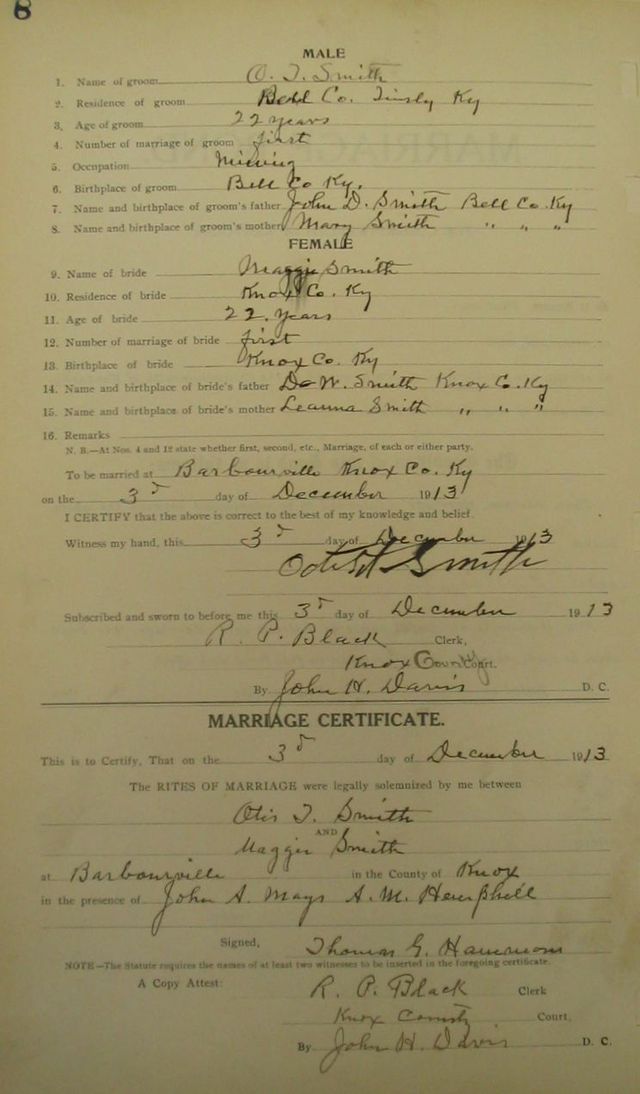 8
MALE
1. Name of groom O. T. Smith
2. Residence of groom Bell Co. Tinsly Ky
3. Age of groom 22 years
4. Number of marriage of groom first
5. Occupation Mining
6. Birthplace of groom Bell Co Ky.
7. Name and birthplace of groom's father John D. Smith Bell Co. Ky
8. Name and birthplace of groom's mother Mary Smith " " "
FEMALE
9. Name of bride Maggie Smith
10. Residence of bride Knox Co. Ky
11. Age of bride 22. years
12. Number of marriage of bride first
13. Birthplace of bride Knox Co. Ky
14. Name and birthplace of bride's father W. Smith Knox Co. Ky
15. Name and birthplace of bride's mother Leanna Smith " " "
16. Remarks
N. B.—At Nos. 4 and 12 state whether first, second, etc., Marriage, of each or either party.
To be married at Barbourville Knox Co. Ky
on the 3d day of December 1913
I CERTIFY that the above is correct to the best of my knowledge and belief.
Witness my hand, this 3d day of December 1913
Smith
Subscribed and sworn to before me this 3d day of December 1913
R. P. Black Clerk,
Knox County Court.
By John H. Davis D. C.
MARRIAGE CERTIFICATE.
This is to Certify, That on the 3d day of December 1913
The RITES OF MARRIAGE were legally solemnized by me between
Otis T. Smith
AND
Maggie Smith
at Barbourville in the County of Knox
in the presence of John A. Mays A. M. Hemphill
Signed, Thomas G. Hammons
NOTE—The Statute requires the names of at least two witnesses to be inserted in the foregoing certificate.
A Copy Attest: R. P. Black Clerk
Knox County Court,
By John H. Davis D. C.